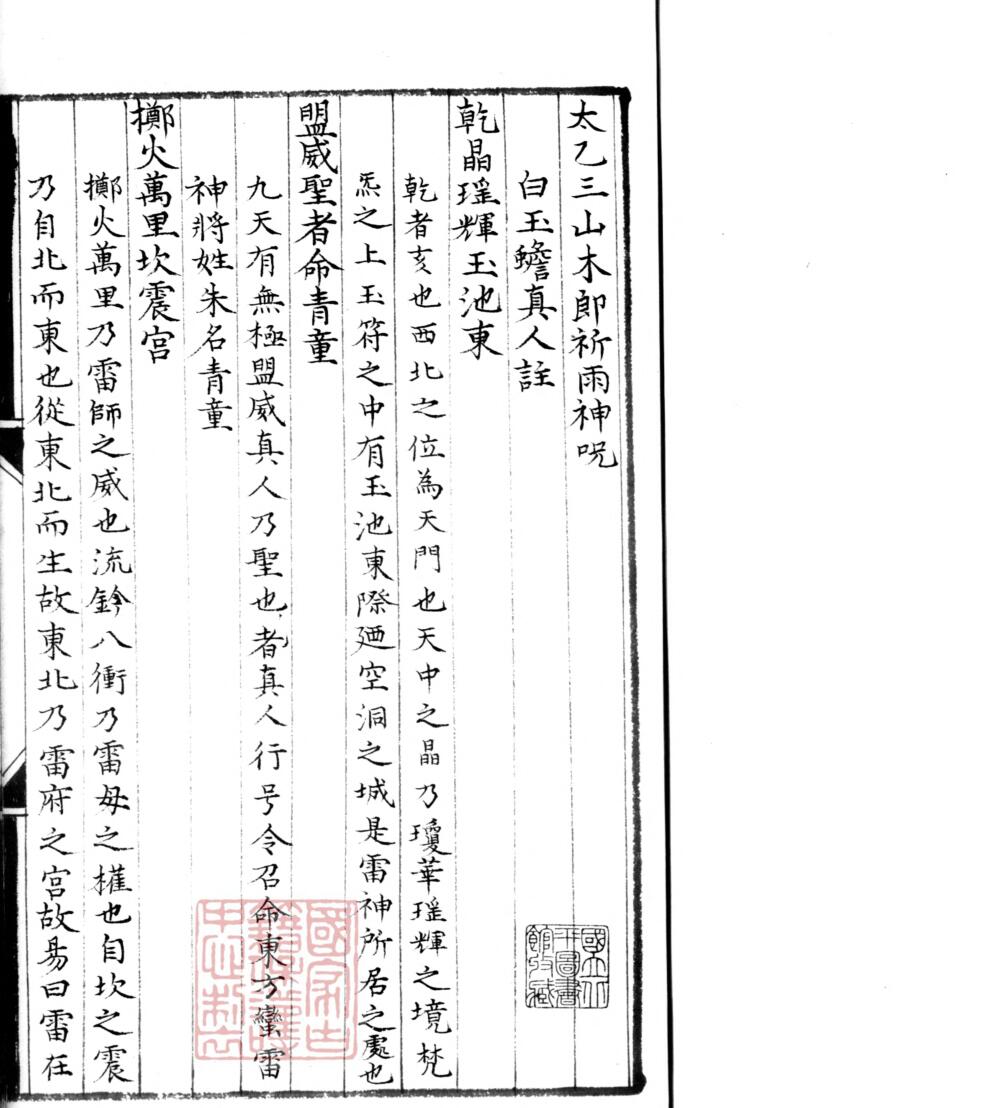 太乙三山木郎祈雨神呪
白玉蟾真人註
乾晶瑶輝玉池東
乾者亥也西北之位為天門也天中之晶乃瓊華瑶輝之境梵
炁之上玉符之中有玉池東際廼空洞之城是雷神所居之處也
盟威聖者命青童
九天有無極盟威真人乃聖也者真人行号令召命東方蠻雷
神將姓朱名青童
擲火萬里坎震宫
擲火萬里乃雷師之威也流鈴八衝乃雷母之權也自坎之震
乃自北而東也從東北而生故東北乃雷府之宫故昜曰雷在
國立北
平圖書
館收藏
國家古
籍